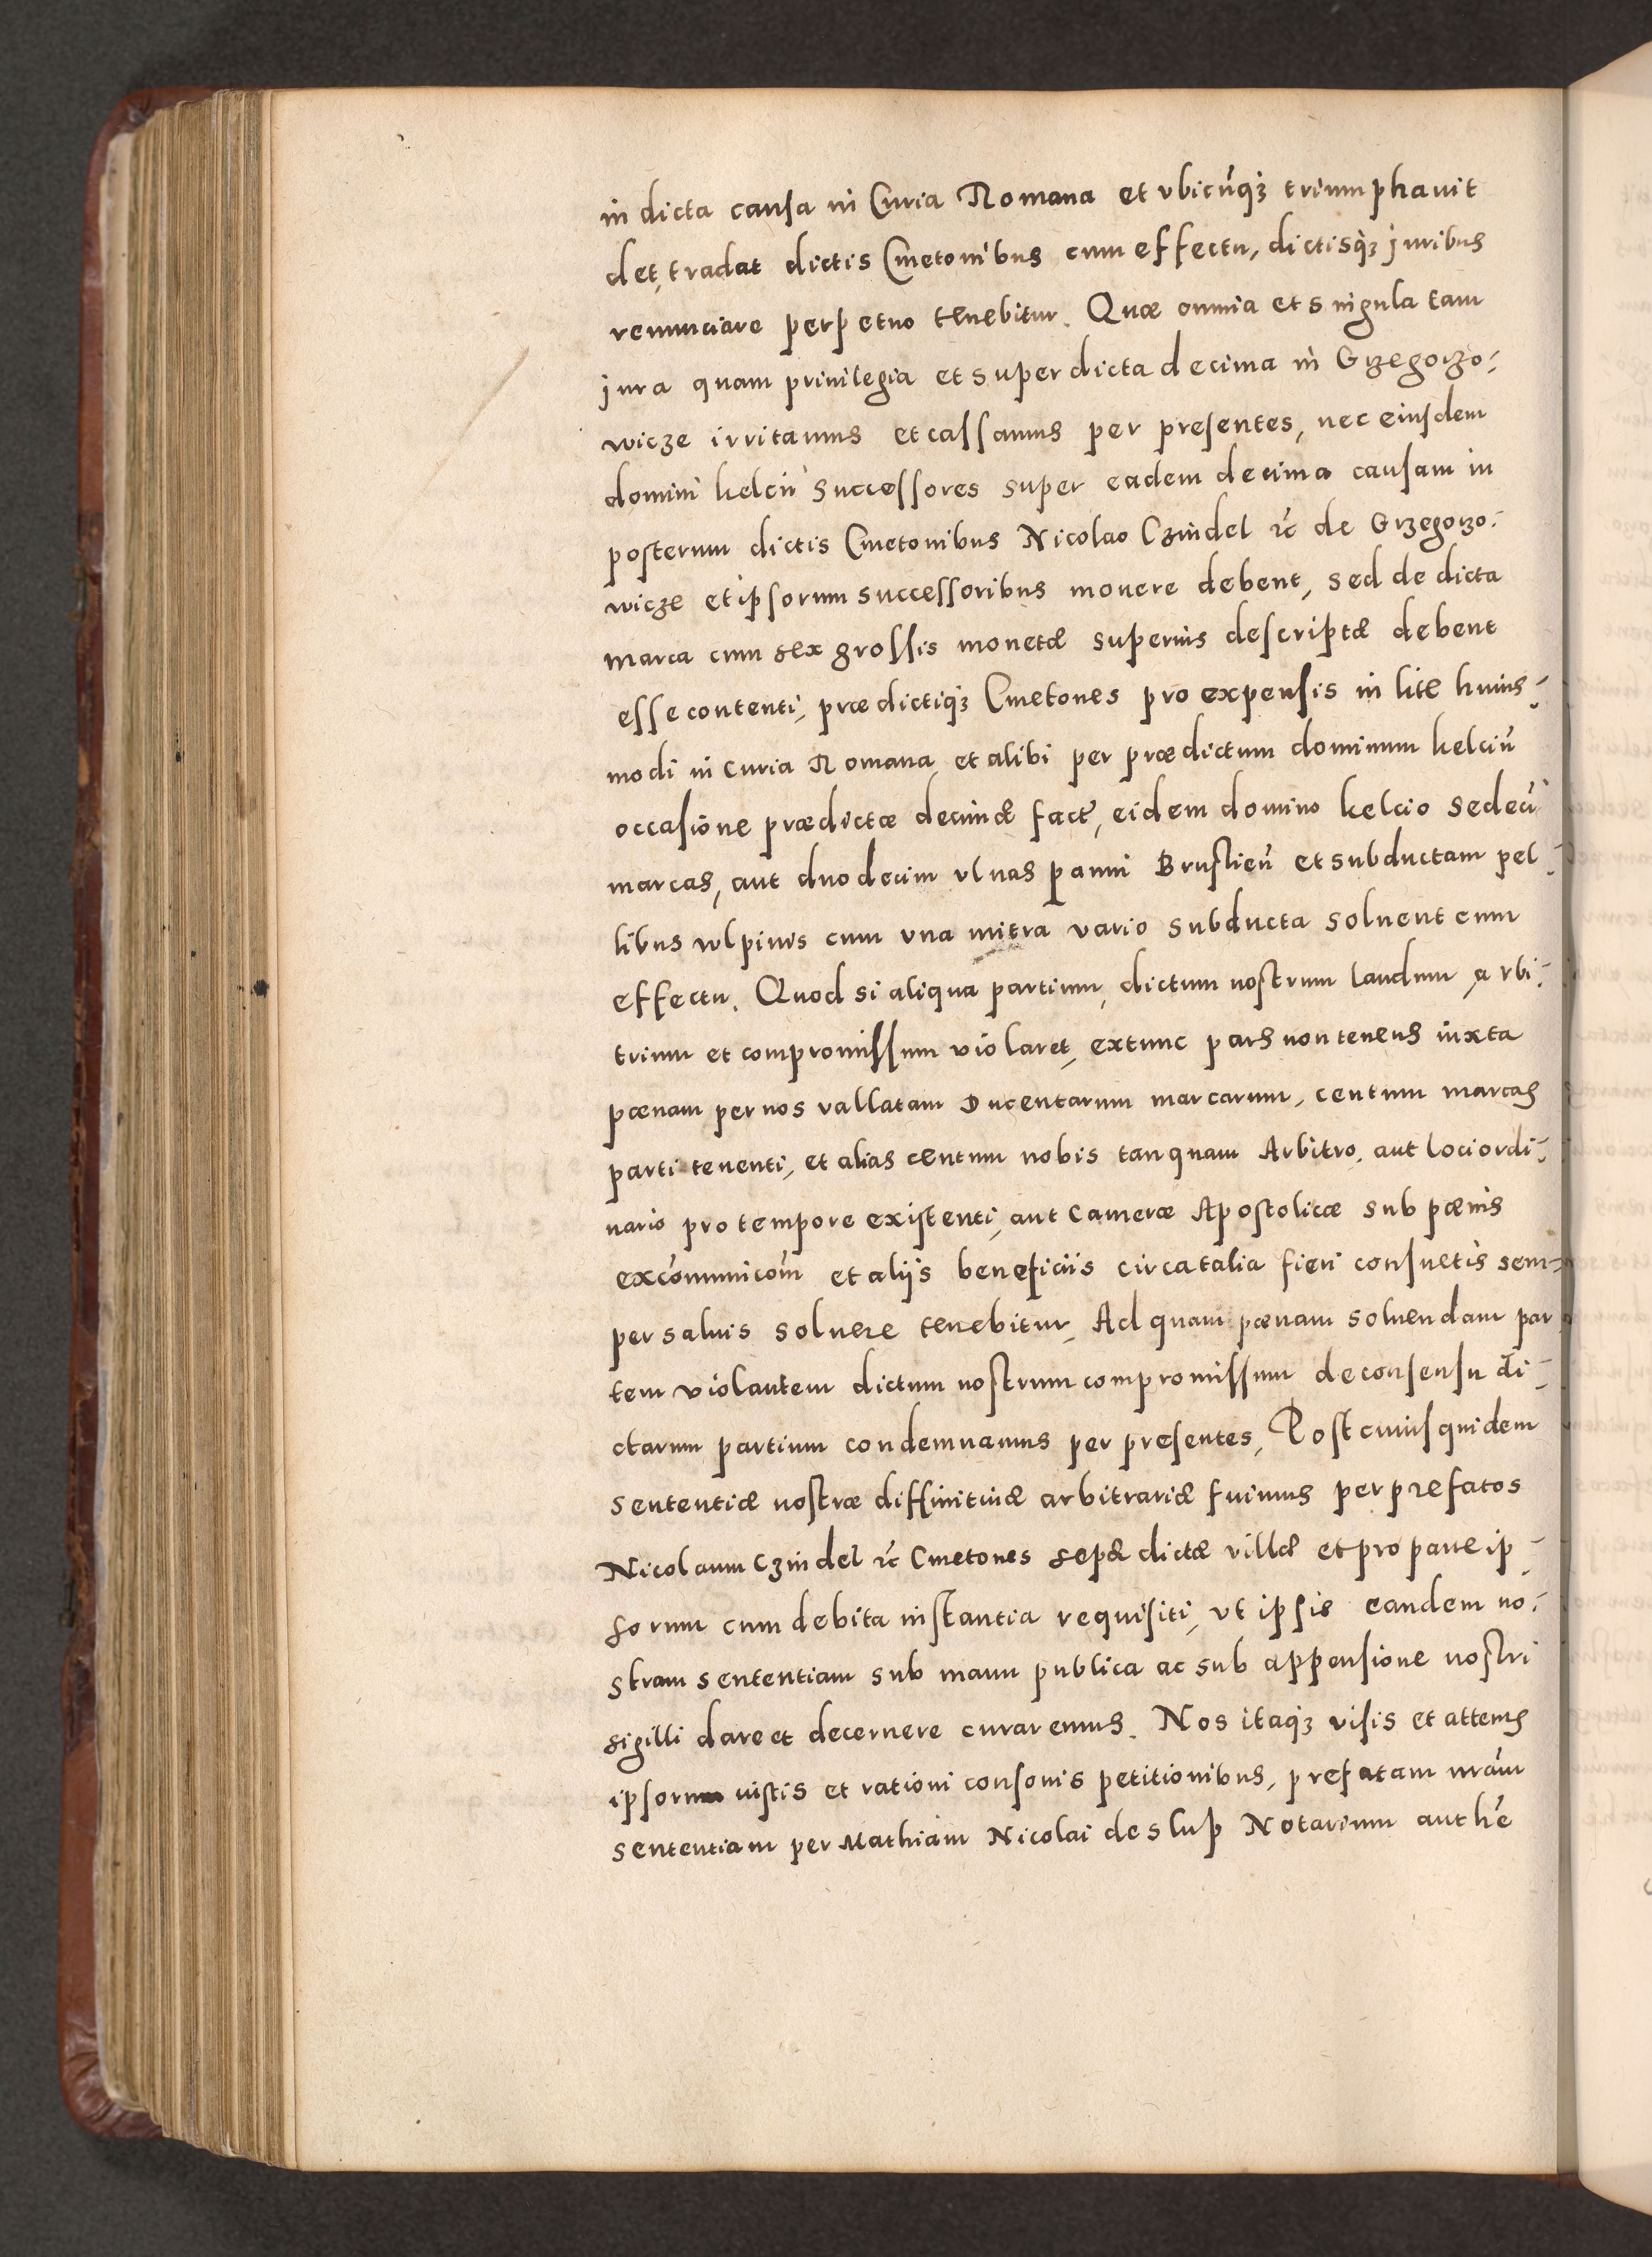 in dicta causa in Curia Romana et vbicūqꝫ triumphauit
det, tradat dictis Cmetonibus cum effectu, dictisqꝫ juribus
renunciare perpetuo tenebitur. Quæ omnia et singula tam
jura quam priuilegia et super dicta decima in Grzegorzo-
wicze irritamus et cassamus per presentes, nec eiusdem
domini kelcii successores super eadem decima causam in
posterum dictis Cmetonibus Nicolao Czindel ꝛc̄ de Grzegorzo-
wicze et ipsorum successoribus mouere debent, sed de dicta
marca cum sex grossis monetæ superius descriptæ debent
esse contenti, prædictiqꝫ Cmetones pro expensis in lite huius-
modi in curia Romana et alibi per prædictum dominum kelciū
occasione prædictæ decimæ fact, eidem domino kelcio sedecī
marcas, aut duodecim vlnas panni Brustieñ et subductam pel-
libus wlpinis cum vna mitra vario subducta soluent cum
effectu. Quod si aliqua partium, dictum nostrum laudum, arbi-
trium et compromissum violaret, extunc pars non tenens iuxta
pœnam per nos vallatam Ducentarum marcarum, centum marcas
parti tenenti, et alias centum nobis tanquam Arbitro, aut loci ordi-
nario pro tempore existenti, aut Cameræ Apostolicæ sub pœnis
excōmunicōm et alijs beneficiis circa talia fieri consuetis sem-
per saluis soluere tenebitur, Ad quam pœnam soluendam par
tem violantem dictum nostrum compromissum de consensu di-
ctarum partium condemnamus per presentes, Post cuius quidem
sententiæ nostræ diffinitiuæ arbitrariæ fuimus per prefatos
Nicolaum Czindel ꝛc̄ Cmetones sepædictæ villæ et pro parte ip-
sorum cum debita instantia requisiti, vt ipsis eandem no-
stram sententiam sub manu publica ac sub appensione nostri
sigilli dare et decernere curaremus. Nos itaqꝫ visis et attentis
ipsorum iustis et rationi consonis petitionibus, prefatam nrām
sententiam per Mathiam Nicolai de slup Notarium authē